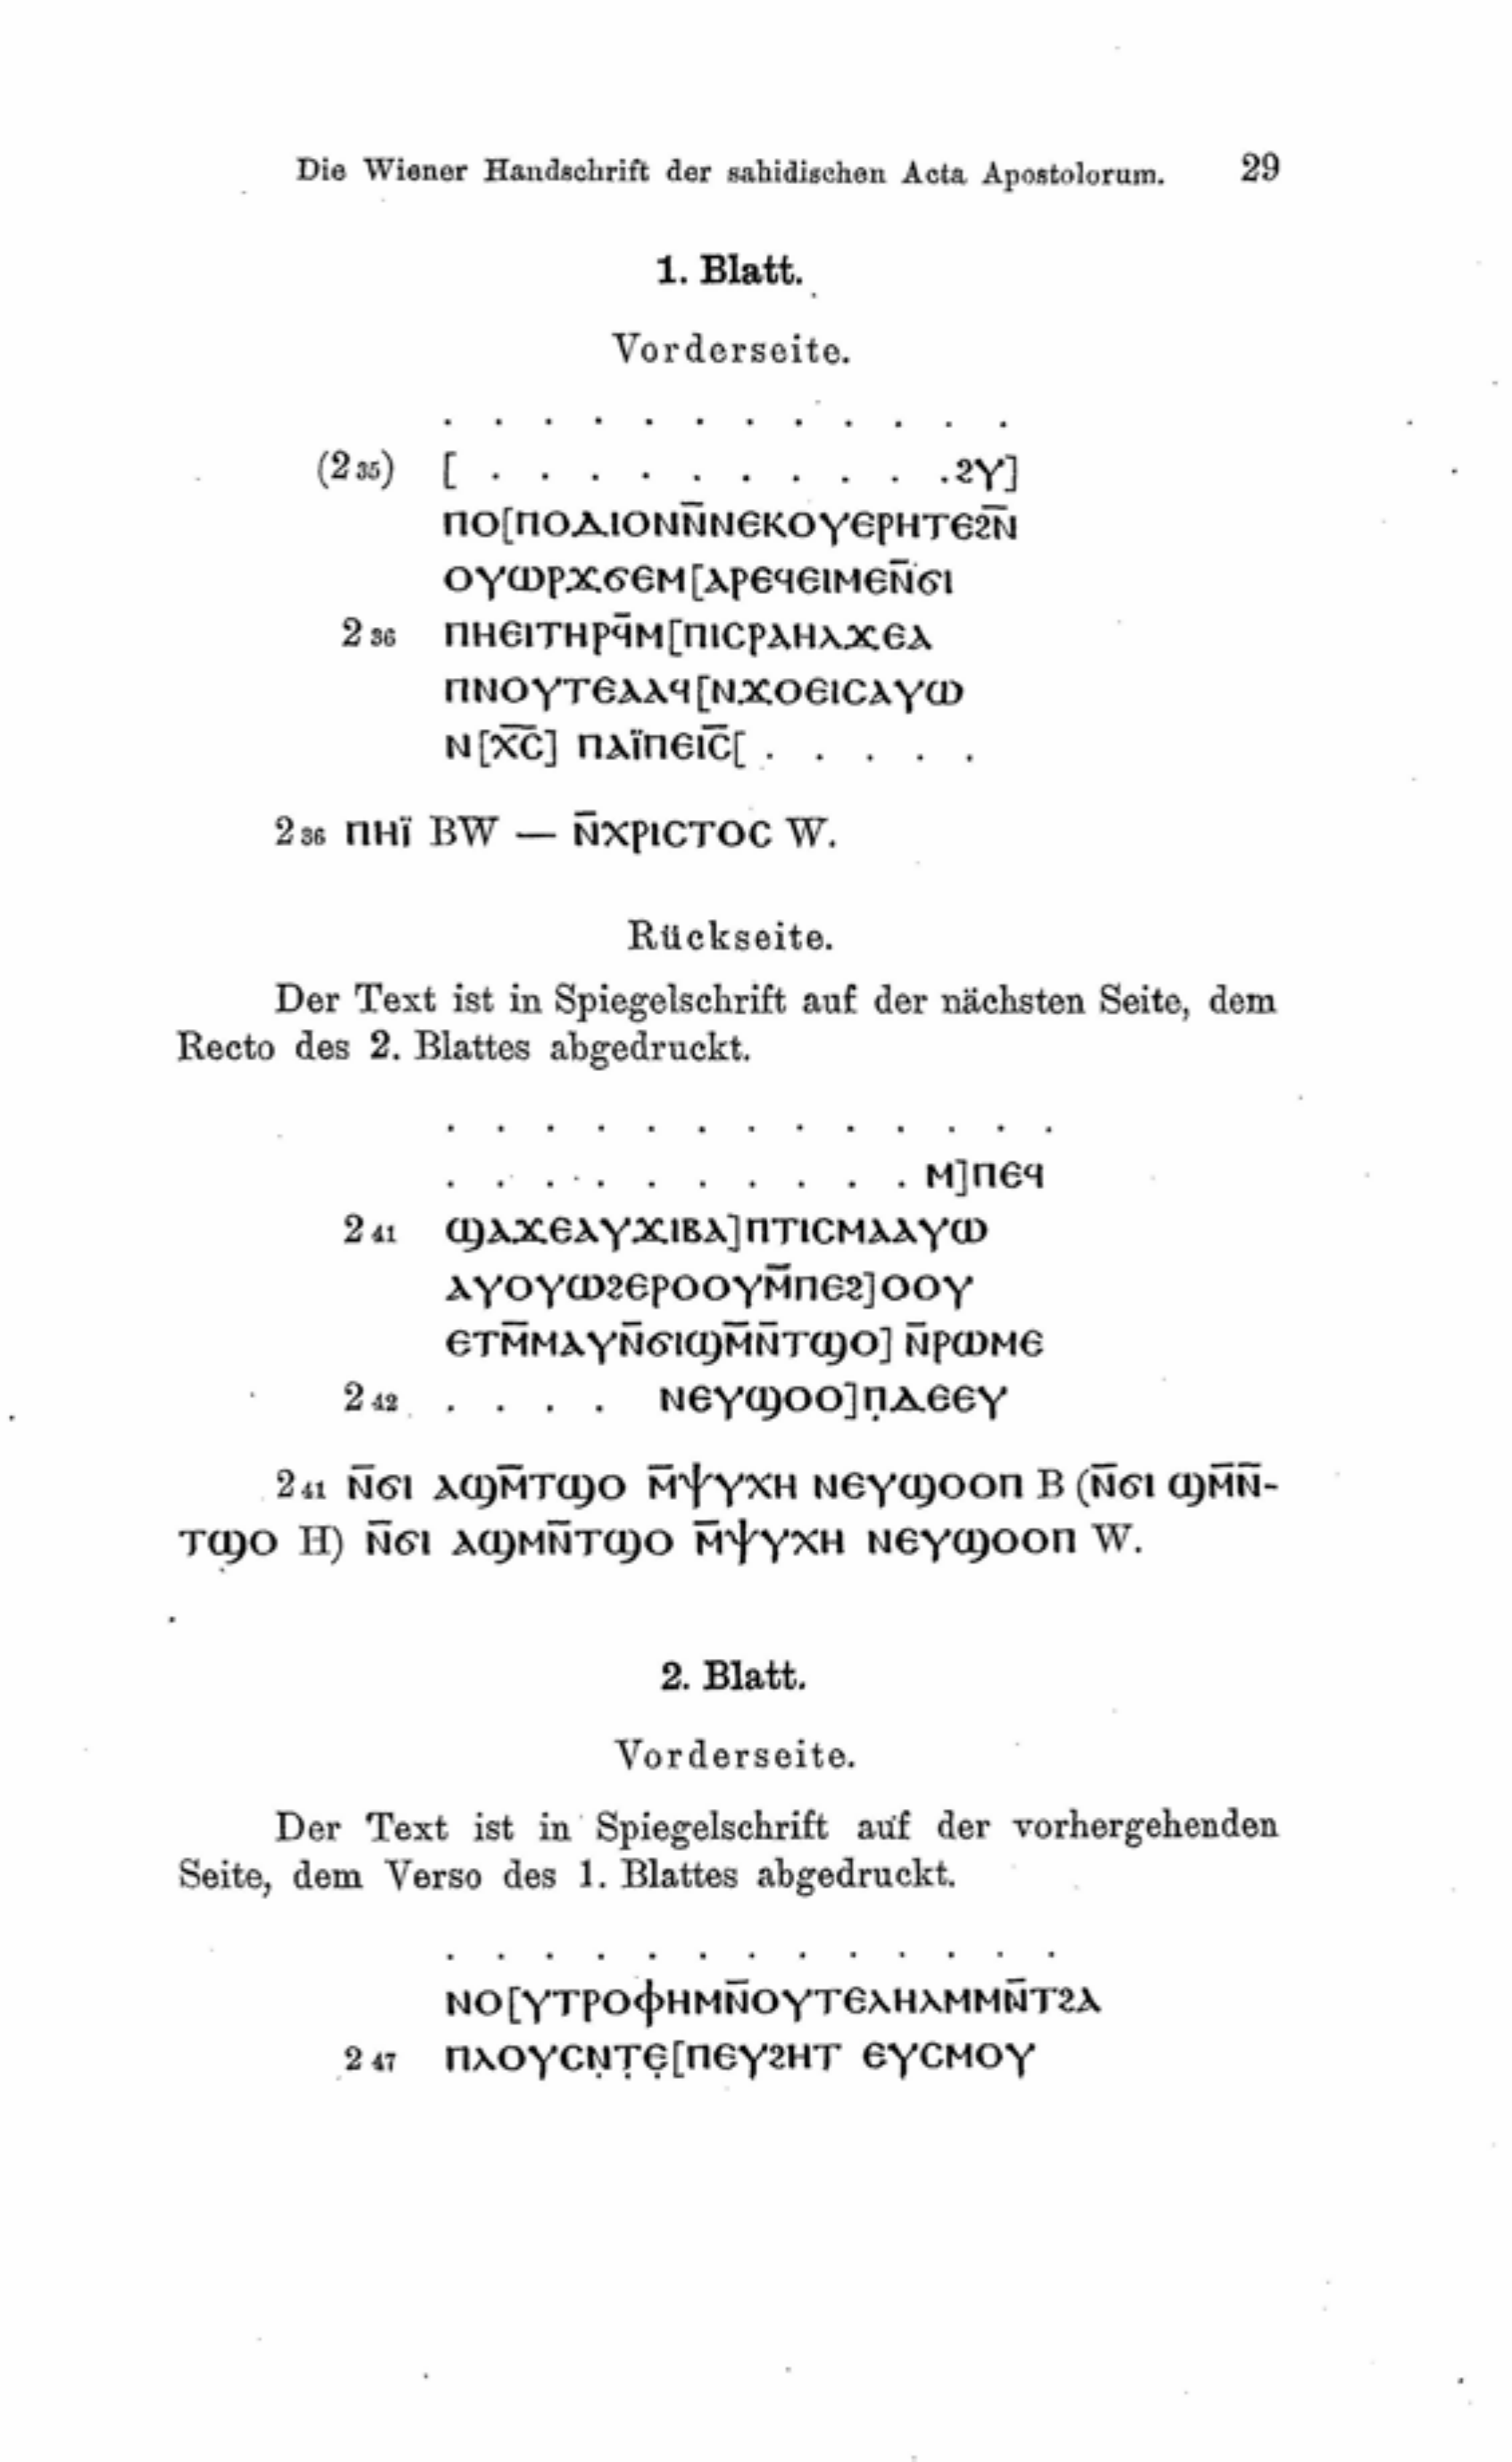 Die Wiener Handschrift der sahidischen Acta Apostolorum. 29
1. Blatt.
Vorderseite.
. . . . . . . . . . . .
(2 35) [ . . . . . . . . . . ϩⲩ]
ⲡⲟ[ⲡⲟⲇⲓⲟⲛⲛ̄ⲛⲉⲕⲟⲩⲉⲣⲏⲧⲉϩⲛ̄
ⲟⲩⲱⲣϫϭⲉⲙ[ⲁⲣⲉϥⲉⲓⲙⲉⲛ̄ϭⲓ
2 36 ⲡⲏⲉⲓⲧⲏⲣϥ̄ⲙ[ⲡⲓⲥⲣⲁⲏⲗϫⲉⲁ
ⲡⲛⲟⲩⲧⲉⲁⲁϥ[ⲛϫⲟⲉⲓⲥⲁⲩⲱ
ⲛ[ⲭ̄ⲥ̄] ⲡⲁⲓ̈ⲡⲉⲓⲥ̄[ . . . . .
2 36 ⲡⲏⲓ̈ BW — ⲛ̄ⲭⲣⲓⲥⲧⲟⲥ W.
Rückseite.
Der Text ist in Spiegelschrift auf der nächsten Seite, dem
Recto des 2. Blattes abgedruckt.
. . . . . . . . . . . . .
. . . . . . . . . . ⲙ]ⲡⲉϥ
2 41 ϣⲁϫⲉⲁⲩϫⲓⲃⲁ]ⲡⲧⲓⲥⲙⲁⲁⲩⲱ
ⲁⲩⲟⲩⲱϩⲉⲣⲟⲟⲩⲙ̄ⲡⲉϩ]ⲟⲟⲩ
ⲉⲧⲙ̄ⲙⲁⲩⲛ̄ϭⲓϣⲙ̄ⲛ̄ⲧϣⲟ] ⲛ̄ⲣⲱⲙⲉ
2 42 . . . . ⲛⲉⲩϣⲟⲟ]ⲡ̣ⲇⲉⲉⲩ
2 41 ⲛ̄ϭⲓ ⲁϣⲙ̄ⲧϣⲟ ⲙ̄ⲯⲩⲭⲏ ⲛⲉⲩϣⲟⲟⲡ B (ⲛ̄ϭⲓ ϣⲙ̄ⲛ̄-
ⲧϣⲟ H) ⲛ̄ϭⲓ ⲁϣⲙⲛ̄ⲧϣⲟ ⲙ̄ⲯⲩⲭⲏ ⲛⲉⲩϣⲟⲟⲡ W.
2. Blatt.
Vorderseite.
Der Text ist in Spiegelschrift auf der vorhergehenden
Seite, dem Verso des 1. Blattes abgedruckt.
. . . . . . . . . . . . .
ⲛⲟ[ⲩⲧⲣⲟⲫⲏⲙⲛ̄ⲟⲩⲧⲉⲗⲏⲗⲙⲙⲛ̄ⲧϩⲁ
2 47 ⲡⲗⲟⲩⲥⲛ̣ⲧ̣ⲉ̣[ⲡⲉⲩϩⲏⲧ ⲉⲩⲥⲙⲟⲩ